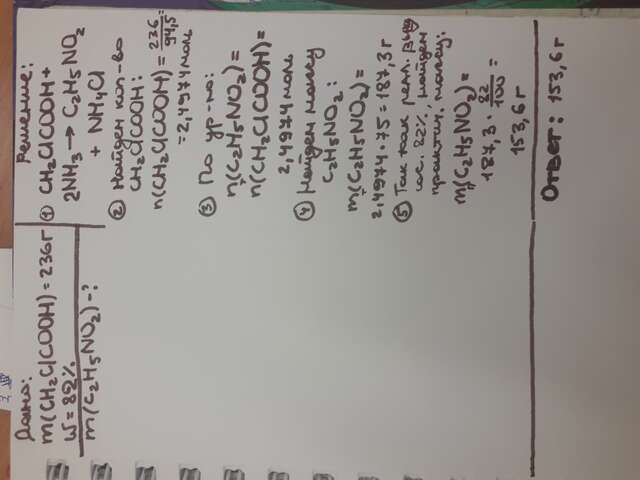 Дано:
m(CH₂ClCOOH) = 236г
W = 82%
m(C₂H₅NO₂) - ?
Решение:
① CH₂ClCOOH +
2NH₃ → C₂H₅NO₂
+ NH₄Cl
② Найдем кол-во
CH₂ClCOOH:
n(CH₂ClCOOH) = 236/94,5 =
= 2,4974 моль
③ По ур-ю:
n(C₂H₅NO₂) =
n(CH₂ClCOOH) =
2,4974 моль
④ Найдем массу
C₂H₅NO₂:
m(C₂H₅NO₂) =
2,4974 · 75 = 187,3 г
⑤ Так как реал. выход
сос. 82%, найдем
практич. массу:
m(C₂H₅NO₂) =
187,3 · 82/100 =
153,6 г
Ответ: 153,6 г